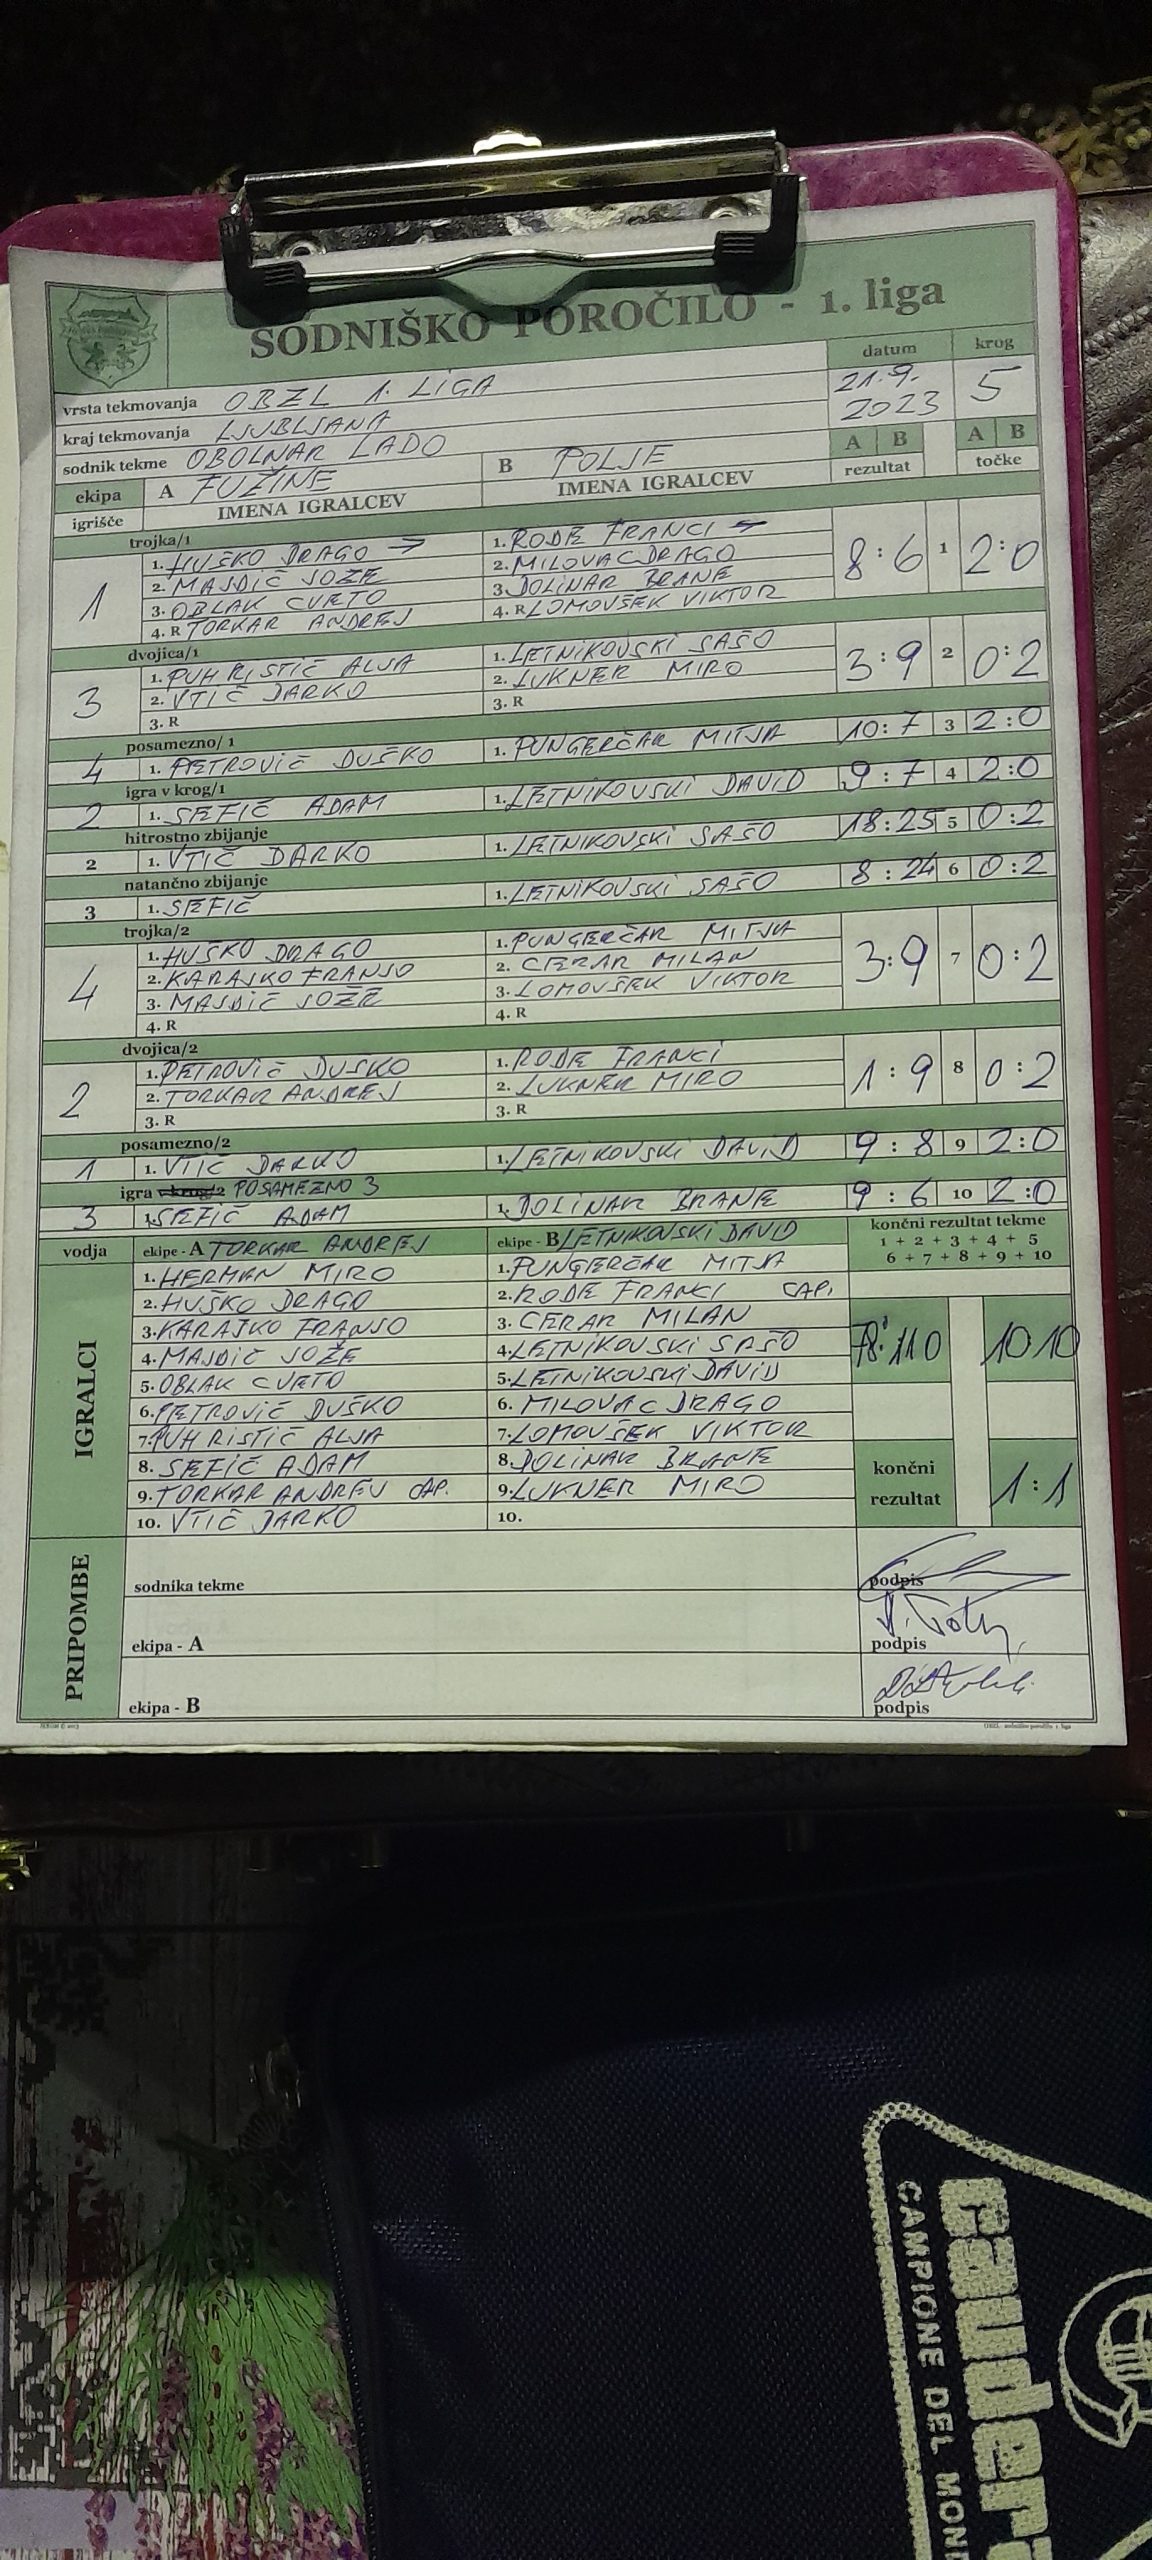 SODNIŠKO POROČILO - 1. liga
datum krog
vrsta tekmovanja OBZL 1. LIGA 21.9. 2023 5
kraj tekmovanja LJUBLJANA
sodnik tekme OBOLNAR LADO
A B A B
rezultat točke
ekipa A FUŽINE B POLJE
igrišče IMENA IGRALCEV IMENA IGRALCEV
trojka/1
1 1. HUŠKO DRAGO → 1. RODE FRANCI → 8:6 1 2:0
2. MAJDIČ JOŽE 2. MILOVAC DRAGO
3. OBLAK CVETO 3. DOLINAR BRANE
4. R TORKAR ANDREJ 4. R LOMOVŠEK VIKTOR
dvojica/1
3 1. PUH RISTIČ ALJA 1. LETNIKOVSKI SAŠO 3:9 2 0:2
2. VTIČ DARKO 2. LUKNER MIRO
3. R 3. R
posamezno/ 1
4 1. PETROVIČ DUŠKO 1. PUNGERČAR MITJA 10:7 3 2:0
igra v krog/1
2 1. SEFIČ ADAM 1. LETNIKOVSKI DAVID 9:7 4 2:0
hitrostno zbijanje
2 1. VTIČ DARKO 1. LETNIKOVSKI SAŠO 18:25 5 0:2
natančno zbijanje
3 1. SEFIČ 1. LETNIKOVSKI SAŠO 8:24 6 0:2
trojka/2
4 1. HUŠKO DRAGO 1. PUNGERČAR MITJA 3:9 7 0:2
2. KARAJKO FRANJO 2. CERAR MILAN
3. MAJDIČ JOŽE 3. LOMOVŠEK VIKTOR
4. R 4. R
dvojica/2
2 1. PETROVIČ DUŠKO 1. RODE FRANCI 1:9 8 0:2
2. TORKAR ANDREJ 2. LUKNER MIRO
3. R 3. R
posamezno/2
1 1. VTIČ DARKO 1. LETNIKOVSKI DAVID 9:8 9 2:0
igra v krog/2 POSAMEZNO 3
3 1. SEFIČ ADAM 1. DOLINAR BRANE 9:6 10 2:0
vodja ekipe - A TORKAR ANDREJ ekipe - B LETNIKOVSKI DAVID končni rezultat tekme
1 + 2 + 3 + 4 + 5
6 + 7 + 8 + 9 + 10
IGRALCI
1. HERMAN MIRO 1. PUNGERČAR MITJA
2. HUŠKO DRAGO 2. RODE FRANCI CAP.
3. KARAJKO FRANJO 3. CERAR MILAN
4. MAJDIČ JOŽE 4. LETNIKOVSKI SAŠO 78:110 10 10
5. OBLAK CVETO 5. LETNIKOVSKI DAVID
6. PETROVIČ DUŠKO 6. MILOVAC DRAGO
7. PUH RISTIČ ALJA 7. LOMOVŠEK VIKTOR
8. SEFIČ ADAM 8. DOLINAR BRANE
9. TORKAR ANDREJ CAP. 9. LUKNER MIRO
10. VTIČ DARKO 10.
končni
rezultat 1:1
PRIPOMBE
sodnika tekme podpis
ekipa - A podpis
ekipa - B podpis
CAMPIONE DEL